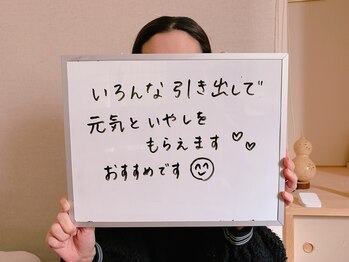 いろんな引き出しで
元気といやしを
もらえます♡♡
おすすめです